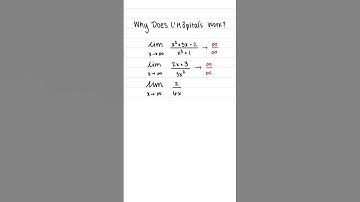 Why Does L'Hôpital's Work?
lim x→∞ x²+3x-2 / x³+1 → ∞/∞
lim x→∞ 2x+3 / 3x² → ∞/∞
lim x→∞ 2 / 6x